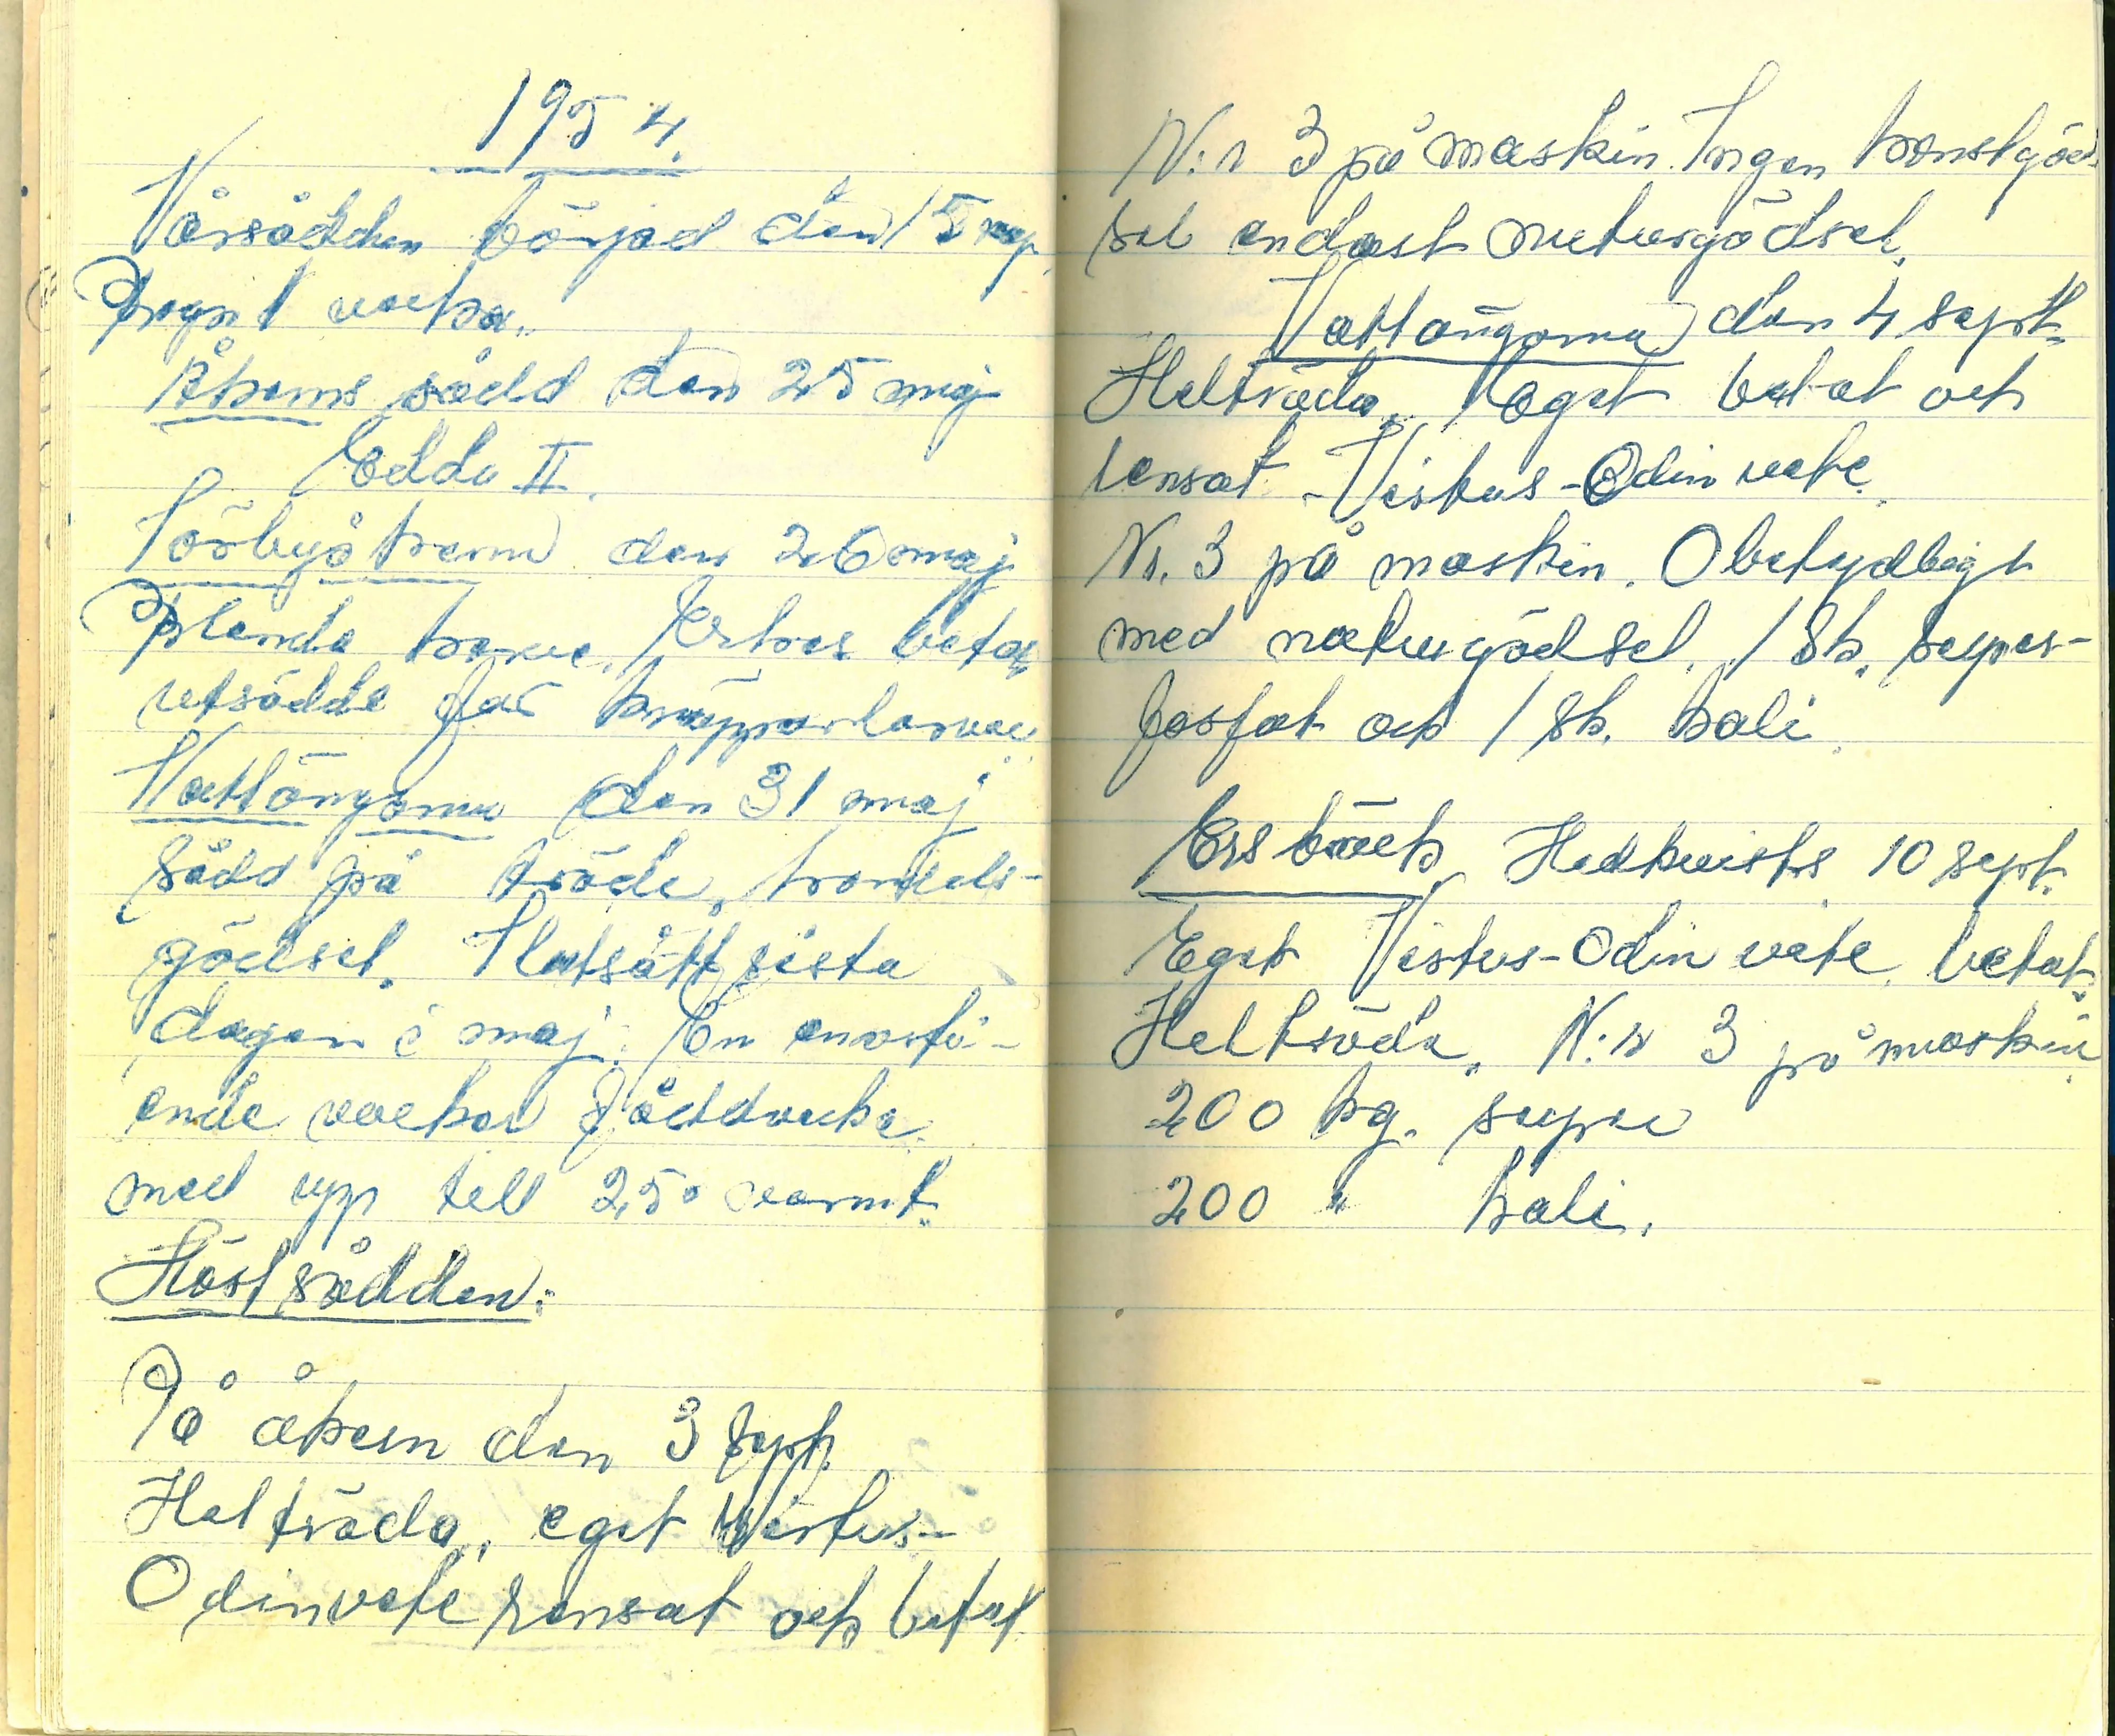 1954.
Vårsådden börjad den 15 maj.
Regn 1 vecka.
Åkern sådd den 25 maj
Edda II.
Törbyåkern den 26 maj
Blenda havre. Ertres betat
utsäde för knäpparlarver
Vattängarna den 31 maj
sådd på träde,
gödsel. Slutsått sista
dagen i maj. En enastå-
ende vacker såddvecka
med upp till 25° varmt.
Höstsådden:
På åkern den 3 sept.
Helträda, eget Virtus-
Odinvete rensat och betat
N:r 3 på maskin. Ingen konstgöd-
sel endast naturgödsel.
Vattängarna den 4 sept.
Helträda. Eget betat och
rensat Virtus-Odin vete.
Nr. 3 på maskin. Obetydligt
med naturgödsel. 1 sk. super-
fosfat och 1 sk. kali.
Ersbäck Hedkvists 10 sept.
Eget Virtus-Odin vete, betat.
Helträda. N:r 3 på maskin
200 kg. super
200 " kali.